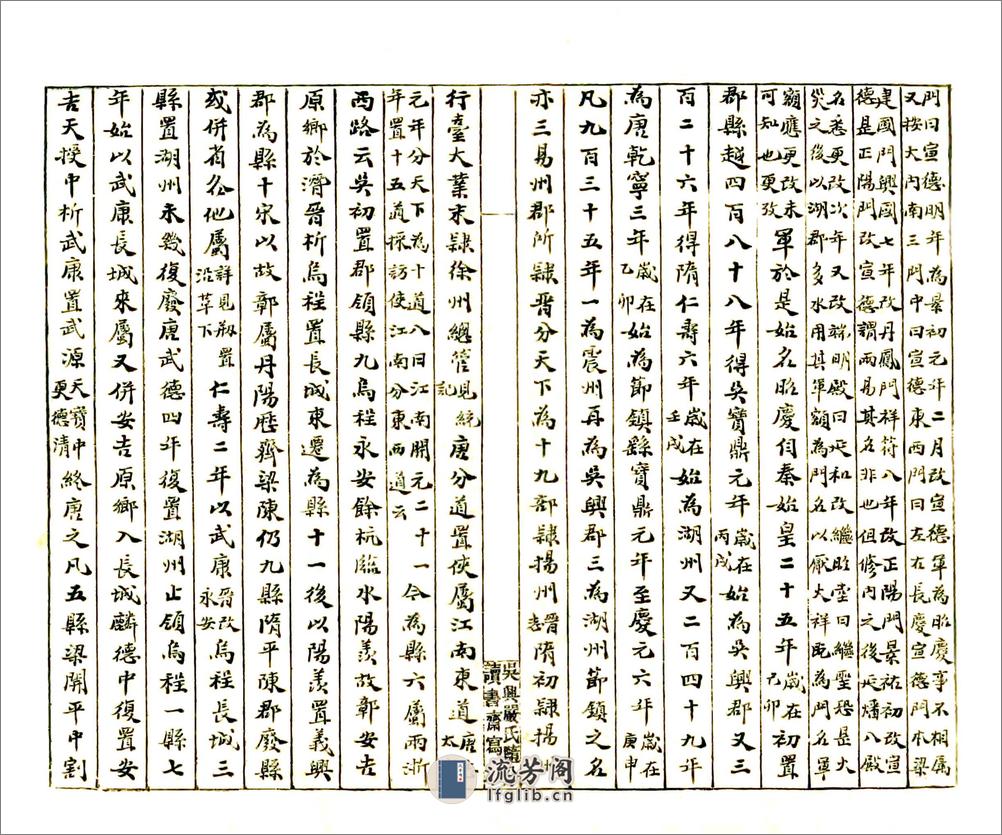 門曰宣德明年為景初元年二月改宣德軍為昭慶事不相屬
又按大内南三門中曰宣德東西門曰左右長慶宣德門本梁
建國門興國七年改丹鳳門祥符八年改正陽門景祐初改宣
德是正陽門改宣德謂兩易其名非也但修内之後延燔八殿
名悉更改次年又改端明殿曰延和改繼昭堂曰繼聖恐是火
災之後以湖郡多水用其軍額為門名以厭火祥既為門名軍
額應更改未
可知也更攷
軍於是始名昭慶自秦始皇二十五年歲在己卯初置
郡縣越四百八十八年得吳寶鼎元年歲在丙戌始為吳興郡又三
百二十六年得隋仁壽六年歲在壬戌始為湖州又二百四十九年
為唐乾寧三年歲在乙卯始為節鎮繇寶鼎元年至慶元六年歲在庚申
凡九百三十五年一為震州再為吳興郡三為湖州節鎮之名
亦三易州郡所隸晉分天下為十九部隸揚州晉志隋初隸揚州
吳興嚴氏隨
讀書齋寫
行臺大業末隸徐州總管見統記唐分道置使屬江南東道唐太
元年分天下為十道八曰江南開元二十一
年置十五道採訪使江南分東西道云
今為縣六屬兩浙
西路云吳初置郡領縣九烏程永安餘杭臨水陽羨故鄣安吉
原鄉於潛晉析烏程置長城東遷為縣十一後以陽羨置義興
郡為縣十宋以故鄣屬丹陽歷齊梁陳仍九縣隋平陳郡廢縣
或併省分他屬詳見廢置沿革下仁壽二年以武康晉改永安烏程長城三
縣置湖州未幾復廢唐武德四年復置湖州止領烏程一縣七
年始以武康長城來屬又併安吉原鄉入長城麟德中復置安
吉天授中析武康置武源天寶中更德清終唐之凡五縣梁開平中割
流芳阁
lfglib.cn